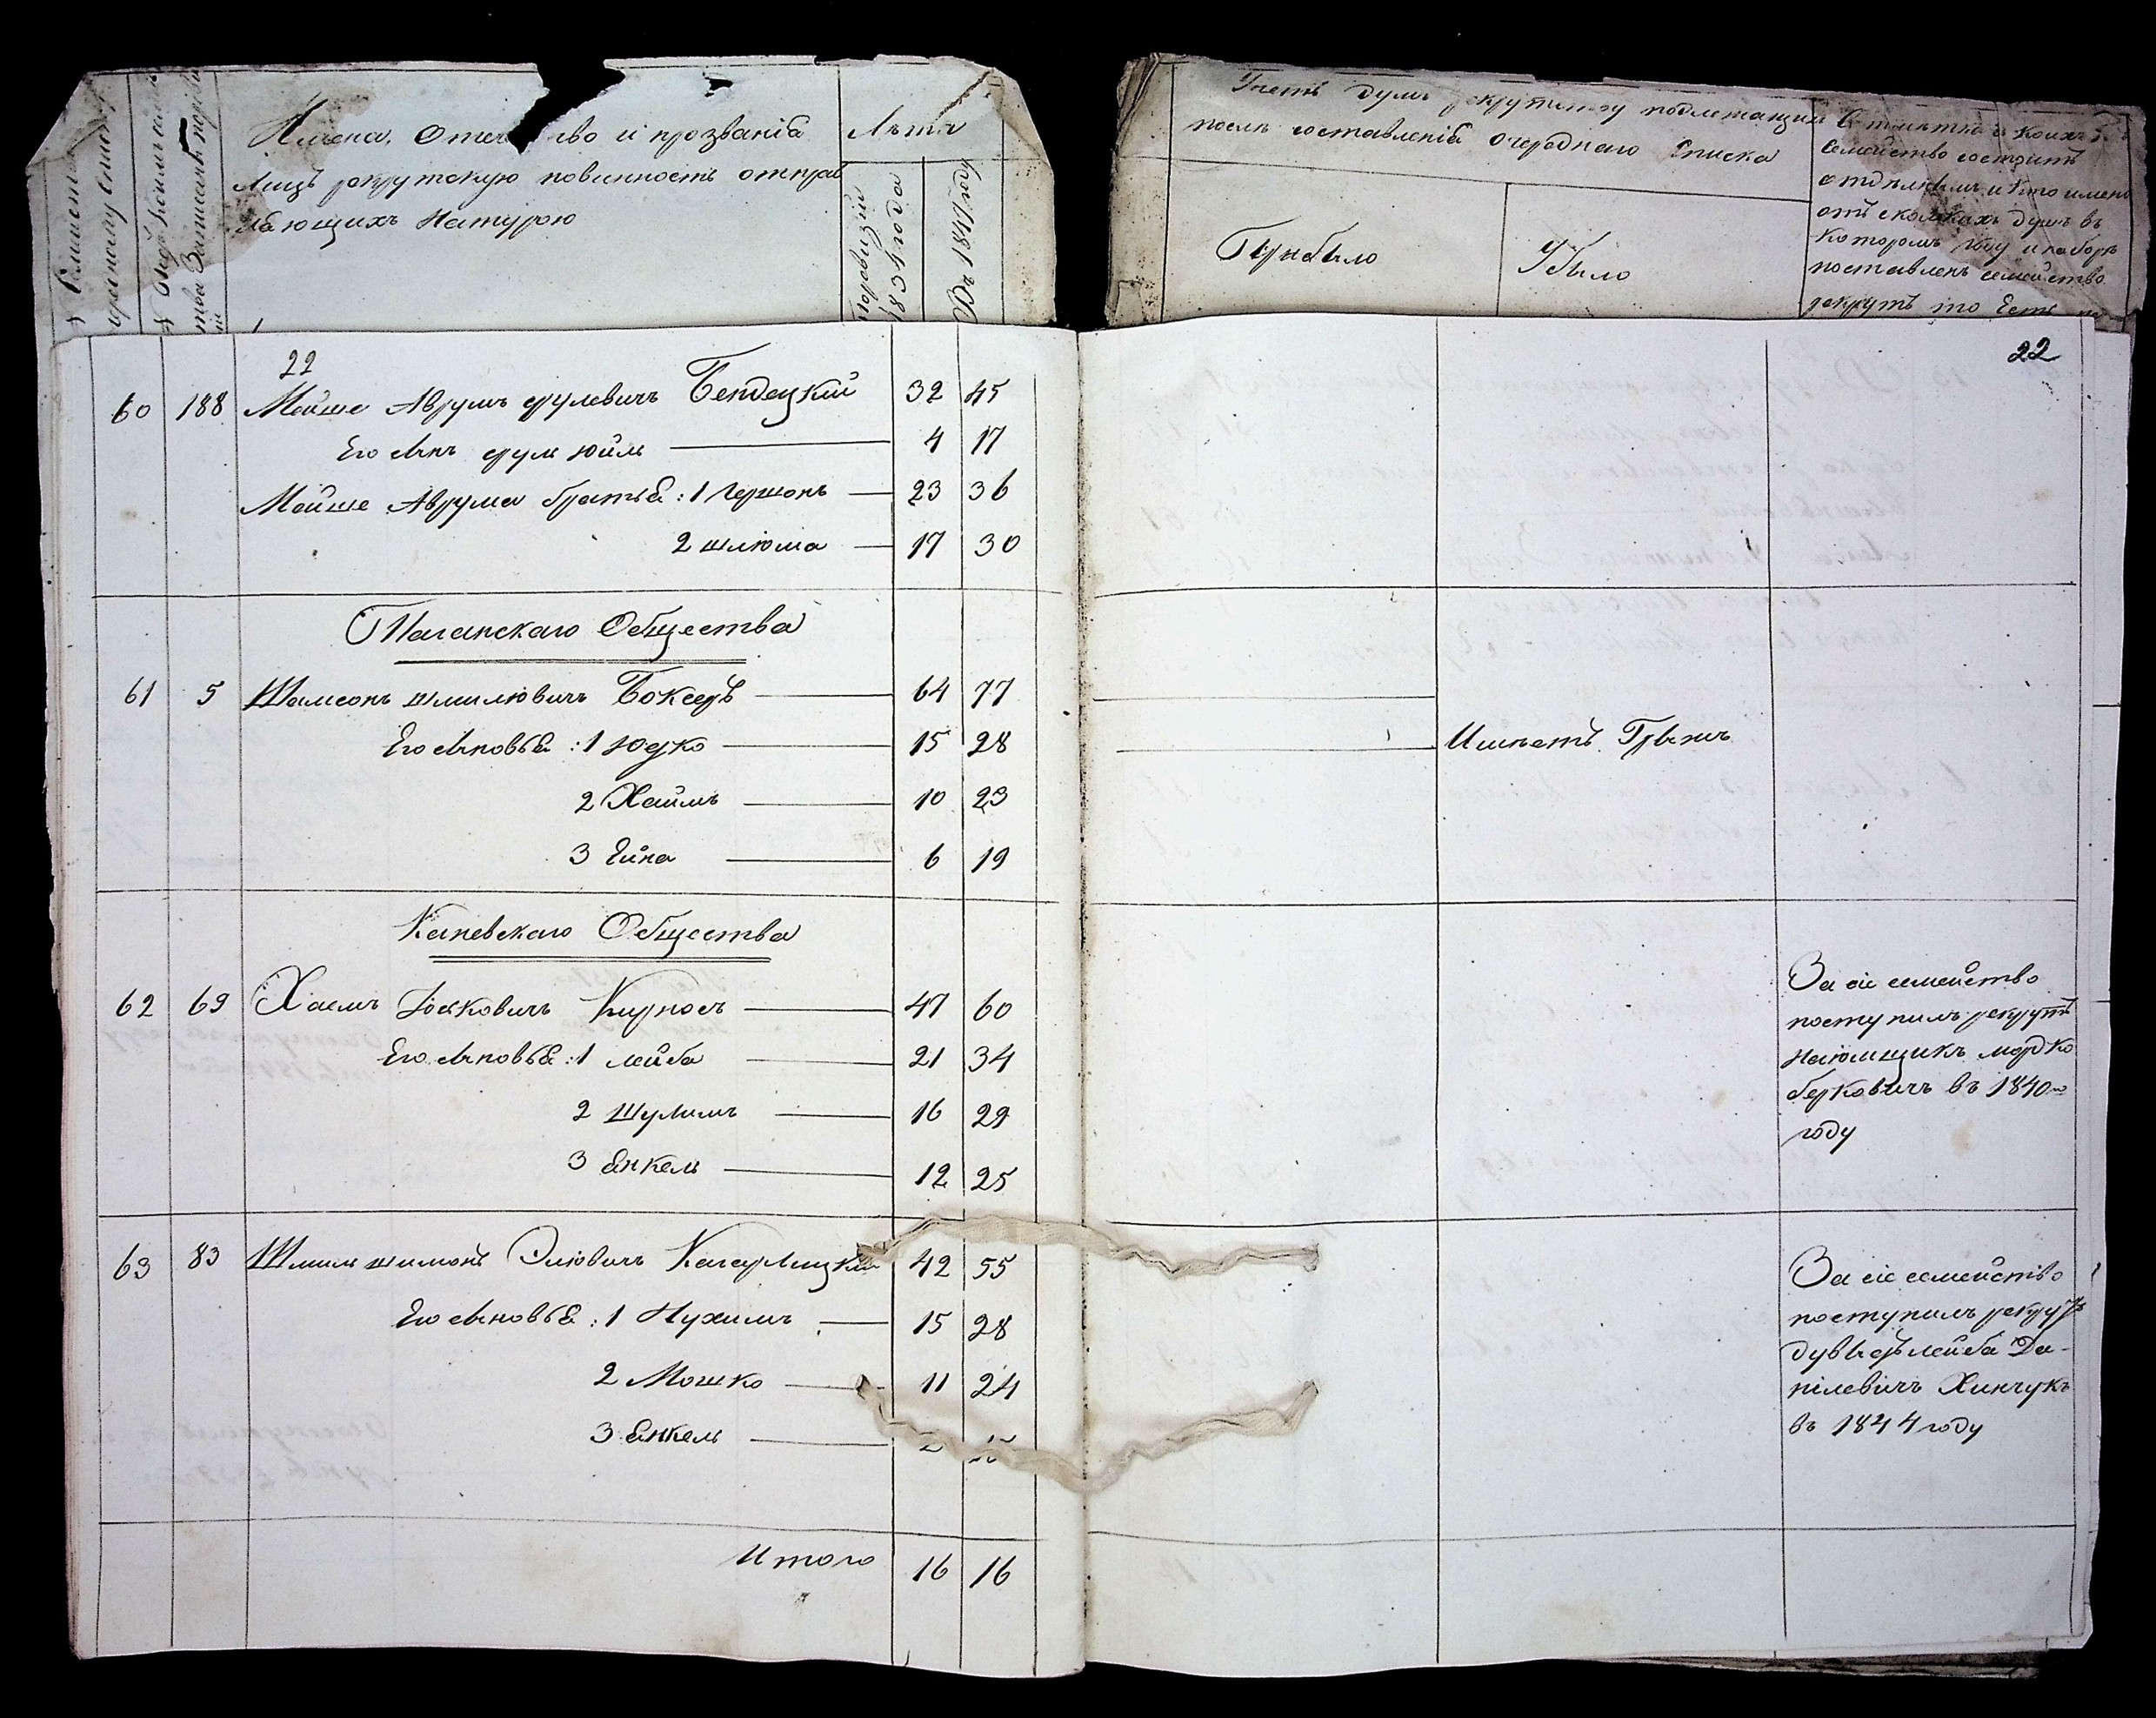 Имена, Отчество и прозванія
Лицъ рекрутскую повинность отправ
ляющихъ Натурою
Лѣта
По ревизіи
1834 года
Въ 1847 году
Учетъ душъ рекрутству подлежащихъ
послѣ составленія очереднаго Списка
Прибыло
Убыло
семейство состоитъ
отдѣльныхъ и кто имено
въ
которомъ году и наборѣ
поставленъ семейство
рекрутъ то Есть
22
22
60 188 Мойше Аврумъ Срулевичъ Бендецкий 32 45
Его Сынъ Срул Юйль 4 17
Мойше Аврума братья: 1 Гершонъ 23 36
2 Шлюма 17 30
Таганскаго Общества
61 5 Шамсонъ Шмилювичъ Боксеръ 64 77
Его Сыновья: 1 Юдко 15 28 Имѣетъ Грыжъ
2 Хаимъ 10 23
3 Ейна 6 19
Каневскаго Общества
62 69 Хаемъ Іосковичъ Кирносъ 47 60
Его Сыновья: 1 Лейба 21 34
2 Шулимъ 16 29
3 Янкель 12 25
За сіе семейство
поступилъ рекрутъ
Наюмщикъ Мордко
Берковичъ въ 1840мъ
году
63 83 Шмиль Шимонъ Элювичъ Кагарлицкий 42 55
Его Сыновья: 1 Нухимъ 15 28
2 Мошко 11 24
3 Янкель 2 15
За сіе семейство
поступилъ рекрутъ
Дувыдъ Лейба Да-
нілевичъ Хинчукъ
въ 1844 году
Итого 16 16